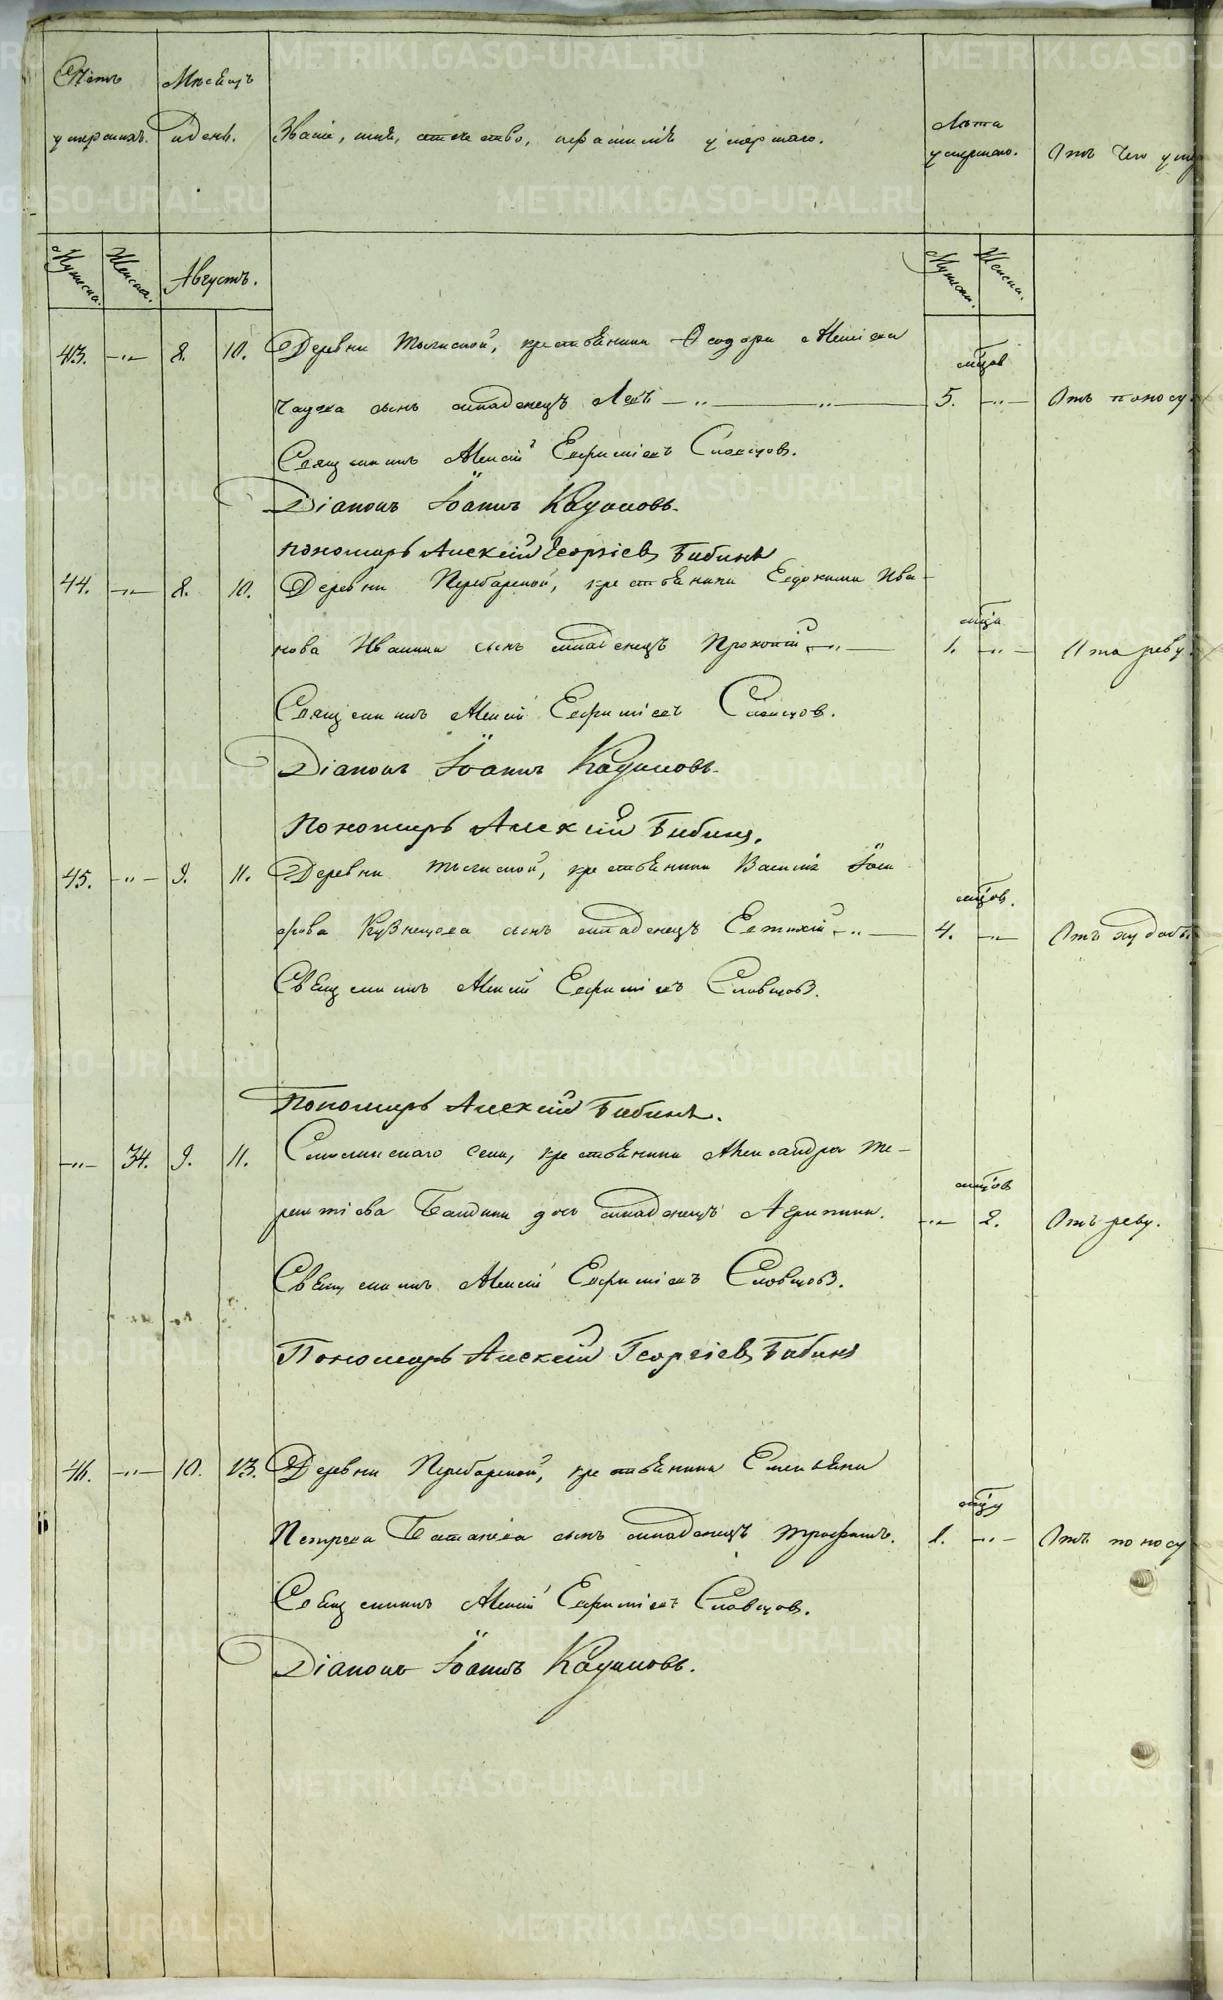 Счетъ умершихъ.
Мѣсяцъ и день.
Званіе, имя, отечество, и фамилія умершаго.
Лѣта умершаго.
Отъ чего умер
Мужеска.
Женска.
Августъ.
Мужеска.
Женска.
43. —„— 8. 10. Деревни крестьянина Ѳеодора Алексѣева
мцов
сынъ младенецъ —„— „ 5. —„— Отъ поносу.
Священникъ Алексій Евфиміевъ Словцов.
Діаконъ Іоаннъ Кадиковъ.
пономарь Алексій Георгіевъ Бабинъ
44. —„— 8. 10. Деревни крестьянина Евдокима Ива-
мца
нова Иванина сынъ младенецъ Прокопій —„— 1. —„— Отъ реву.
Священникъ Алексій Евфиміевъ Словцов.
Діаконъ Іоаннъ Кадиковъ.
Пономарь Алексій Бабинъ.
45. —„— 9. 11. Деревни крестьянина Василія
мцов.
Кузнецова сынъ младенецъ Евтихій —„— 4. —„— Отъ худобы.
Священникъ Алексій Евфиміевъ Словцовъ.
Пономарь Алексій Бабинъ.
—„— 34. 9. 11. села, крестьянина Александра Те-
мцов
рентіева дочь младенецъ Агрипина. —„— 2. Отъ реву.
Священникъ Алексій Евфиміевъ Словцовъ.
Пономарь Алексій Георгіевъ Бабинъ
46. —„— 10. 13. Деревни крестьянина Емельяна
мцу
Петрова сынъ младенецъ Трофимъ. 1. —„— Отъ поносу
Священникъ Алексій Евфиміевъ Словцов.
Діаконъ Іоаннъ Кадиковъ.
METRIKI.GASO-URAL.RU